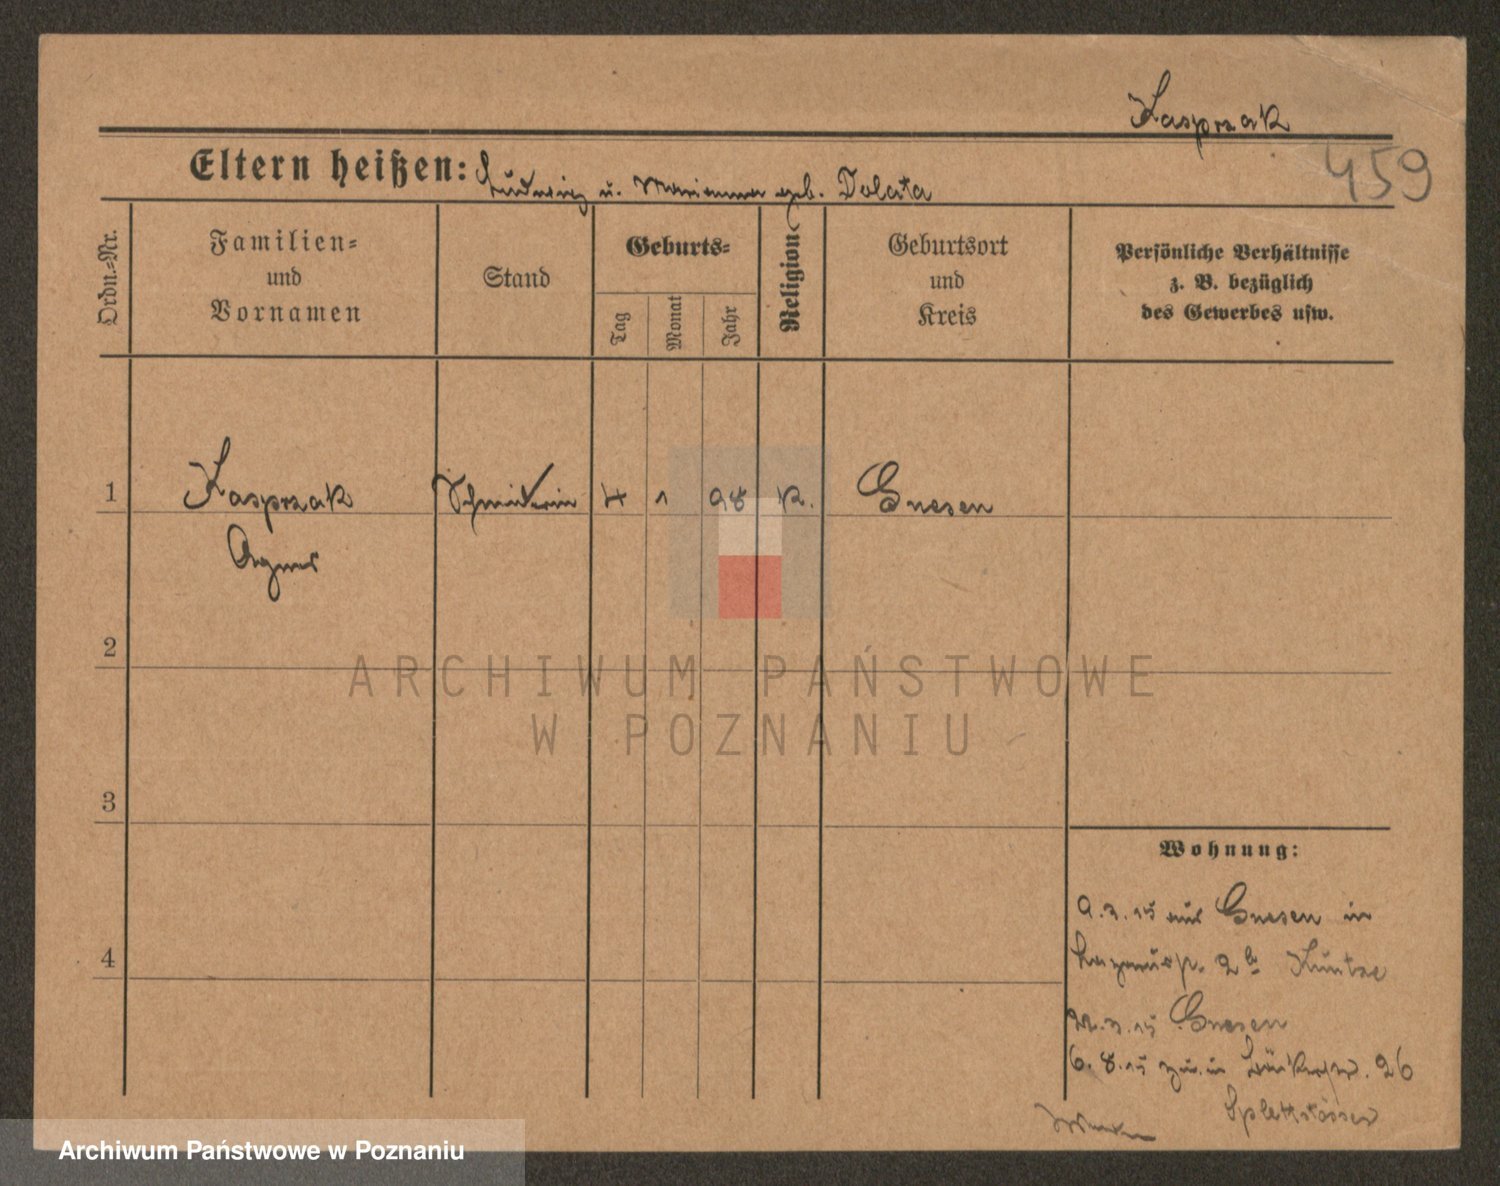 Kasprzak
459
Eltern heißen: Ludwig u. Marianna geb. Dolata
Ordn.-Nr.
Familien- und Vornamen
Stand
Geburts-
Tag
Monat
Jahr
Religion
Geburtsort und Kreis
Persönliche Verhältnisse z. B. bezüglich des Gewerbes usw.
1 Kasprzak Schneiderin 4 1 98 K. Gnesen
Agnes
2
ARCHIWUM PAŃSTWOWE
W POZNANIU
3
Wohnung:
9.3.15 aus Gnesen in
2 b Kuntze
4
22.3.15 Gnesen
6.8.15 in 26
Splettstösser
Archiwum Państwowe w Poznaniu